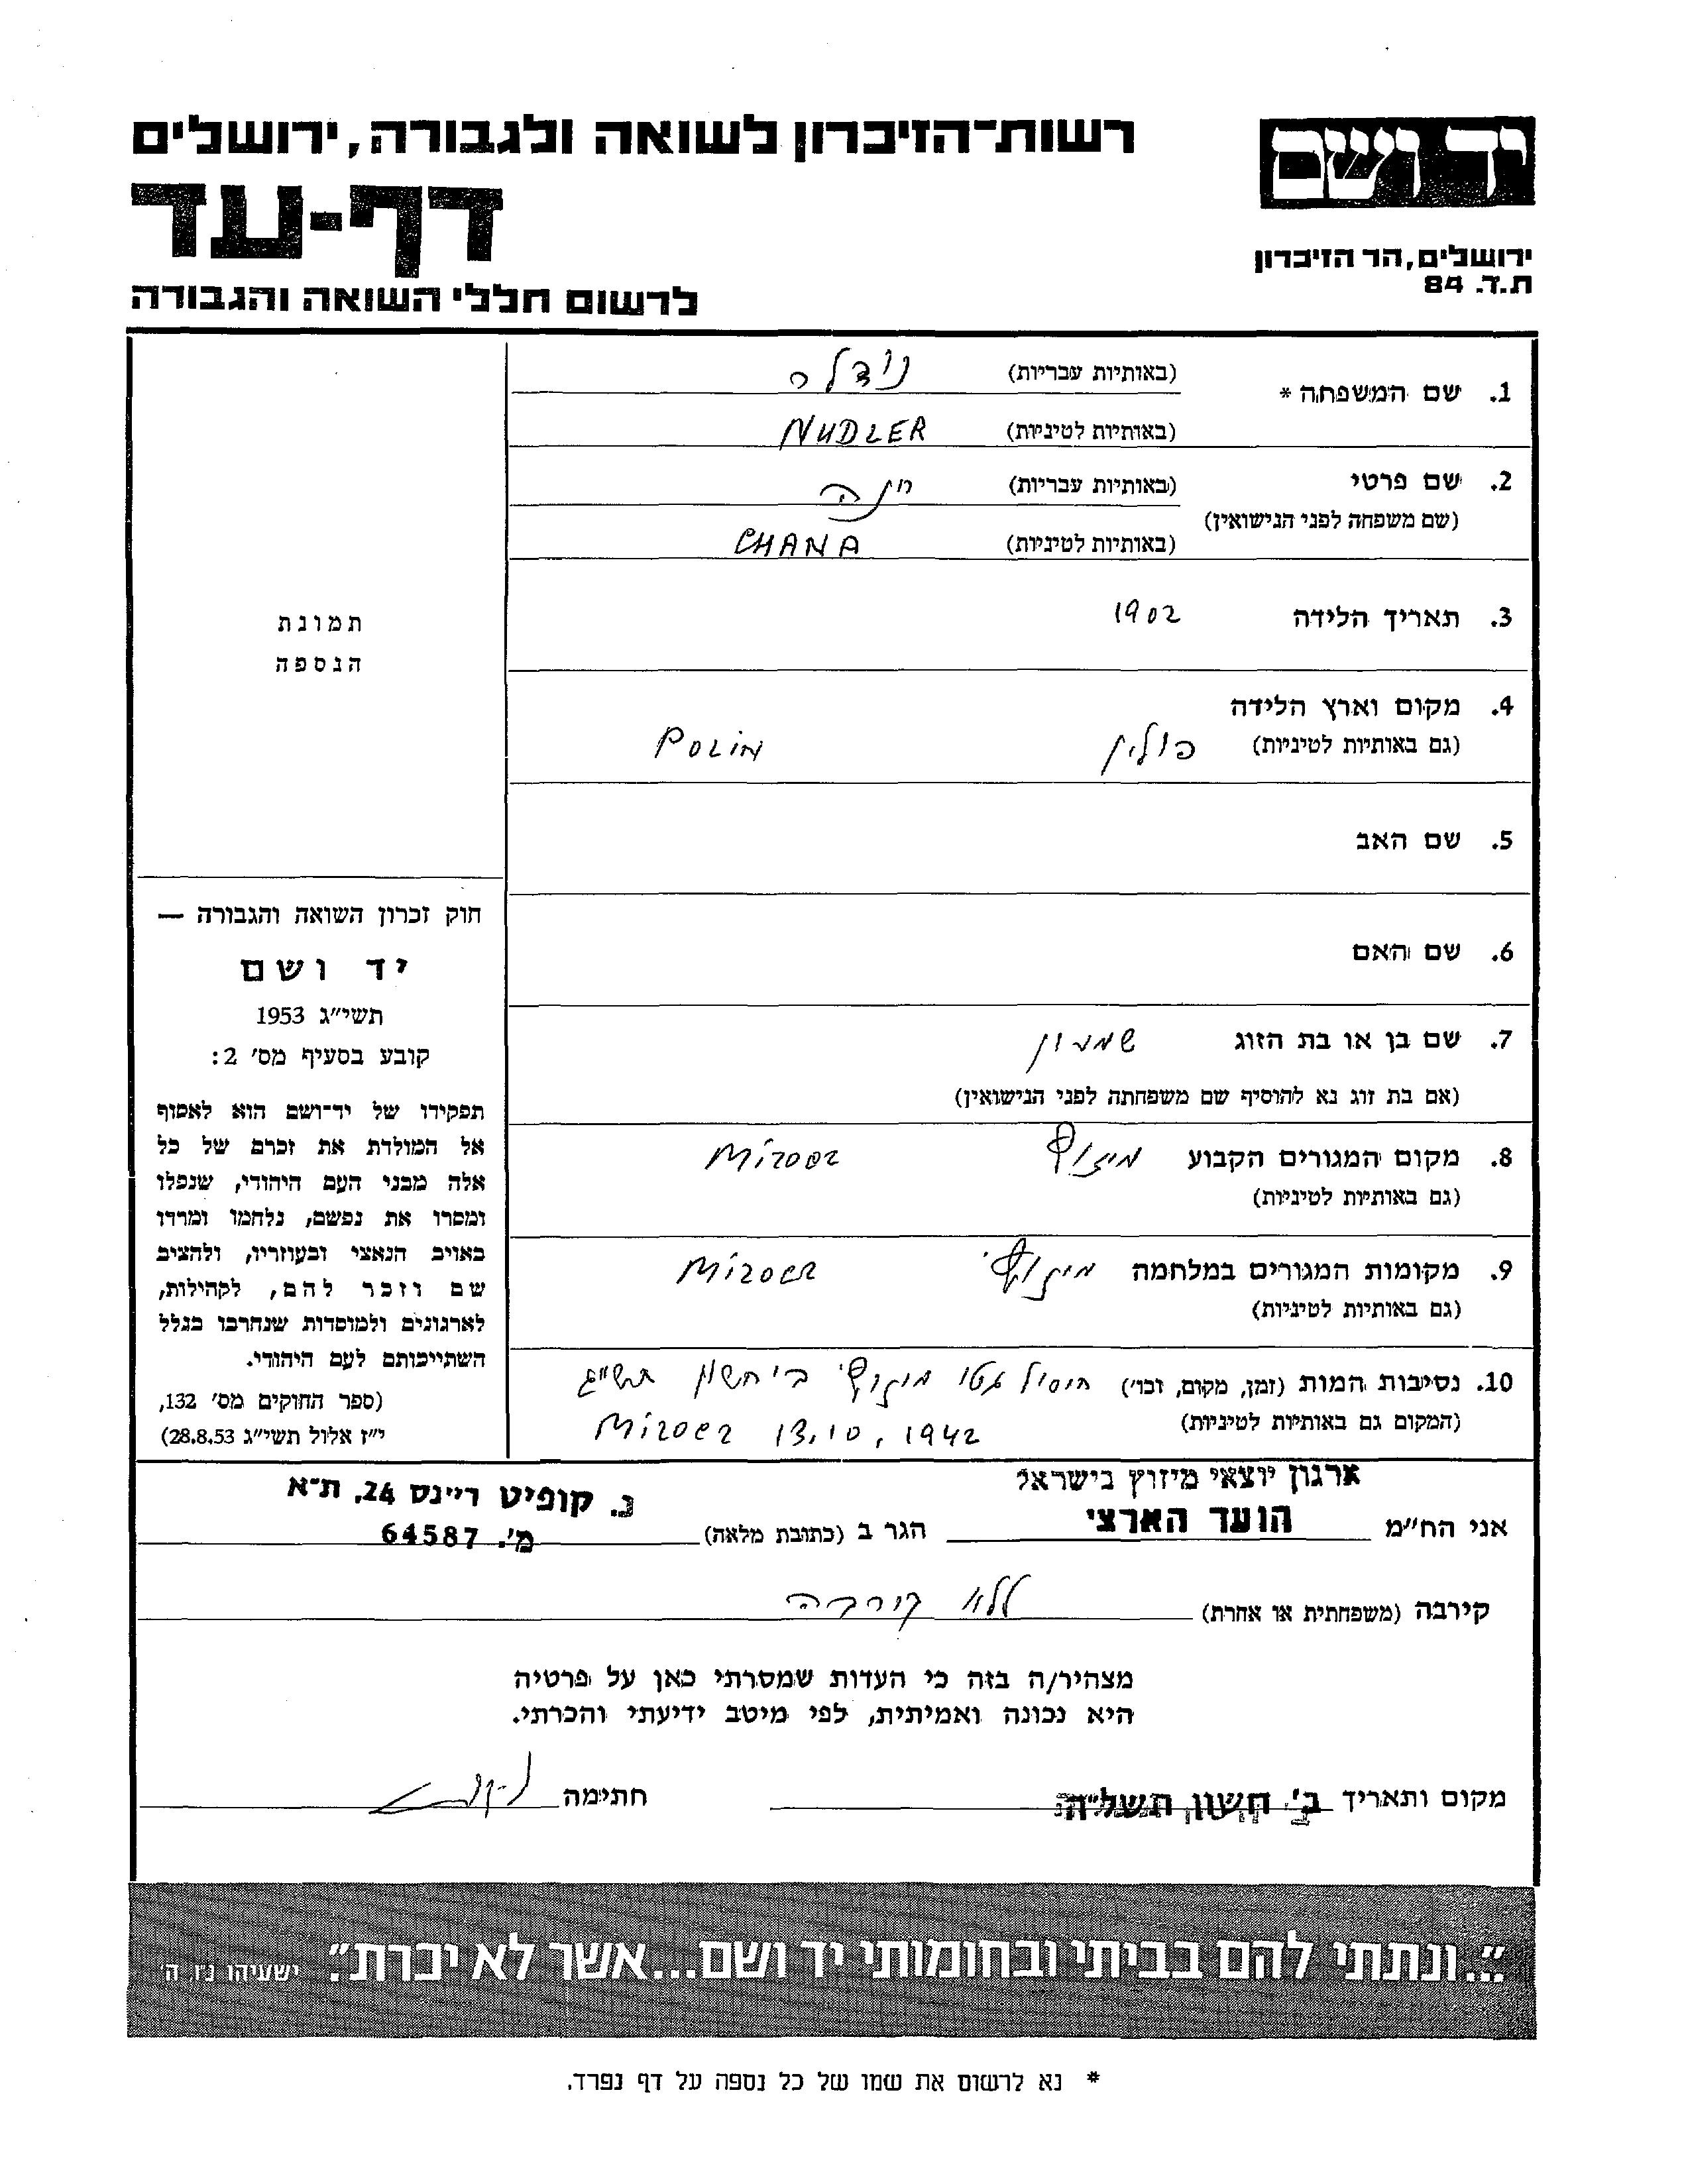 רשות־הזיכרון לשואה ולגבורה, ירושלים
דף-עד
לרשום חללי השואה והגבורה
יד ושם
ירושלים, הר הזיכרון
ת.ד. 84
1. שם המשפחה * (באותיות עבריות) נודלר
(באותיות לטיניות) NUDLER
2. שם פרטי (באותיות עבריות) חנה
(שם משפחה לפני הנישואין)
(באותיות לטיניות) CHANA
3. תאריך הלידה 1902
4. מקום וארץ הלידה
(גם באותיות לטיניות) פולין POLIN
5. שם האב
6. שם האם
7. שם בן או בת הזוג שמעון
(אם בת זוג נא להוסיף שם משפחתה לפני הנישואין)
8. מקום המגורים הקבוע מיזוץ Mizocz
(גם באותיות לטיניות)
9. מקומות המגורים במלחמה מיזוץ Mizocz
(גם באותיות לטיניות)
10. נסיבות המות (זמן, מקום, וכו') חיסול גטו מיזוץ ב' חשון תש"ג
(המקום גם באותיות לטיניות) Mizocz 13.10.1942
תמונת
הנספה
חוק זכרון השואה והגבורה —
יד ושם
תשי"ג 1953
קובע בסעיף מס' 2:
תפקידו של יד־ושם הוא לאסוף
אל המולדת את זכרם של כל
אלה מבני העם היהודי, שנפלו
ומסרו את נפשם, נלחמו ומרדו
באויב הנאצי ובעוזריו, ולהציב
שם וזכר להם, לקהילות,
לארגונים ולמוסדות שנחרבו בגלל
השתייכותם לעם היהודי.
(ספר החוקים מס' 132,
י"ז אלול תשי"ג 28.8.53)
ארגון יוצאי מיזוץ בישראל
אני הח"מ הועד הארצי הגר ב (כתובת מלאה) נ. קופיט ריינס 24, ת־א
מ'. 64587
קירבה (משפחתית או אחרת) ללא קורבה
מצהיר/ה בזה כי העדות שמסרתי כאן על פרטיה
היא נכונה ואמיתית, לפי מיטב ידיעתי והכרתי.
מקום ותאריך ב', חשון תשל"ה חתימה
"...ונתתי להם בביתי ובחומותי יד ושם...אשר לא יכרת". ישעיהו נ"ו, ה'
* נא לרשום את שמו של כל נספה על דף נפרד.